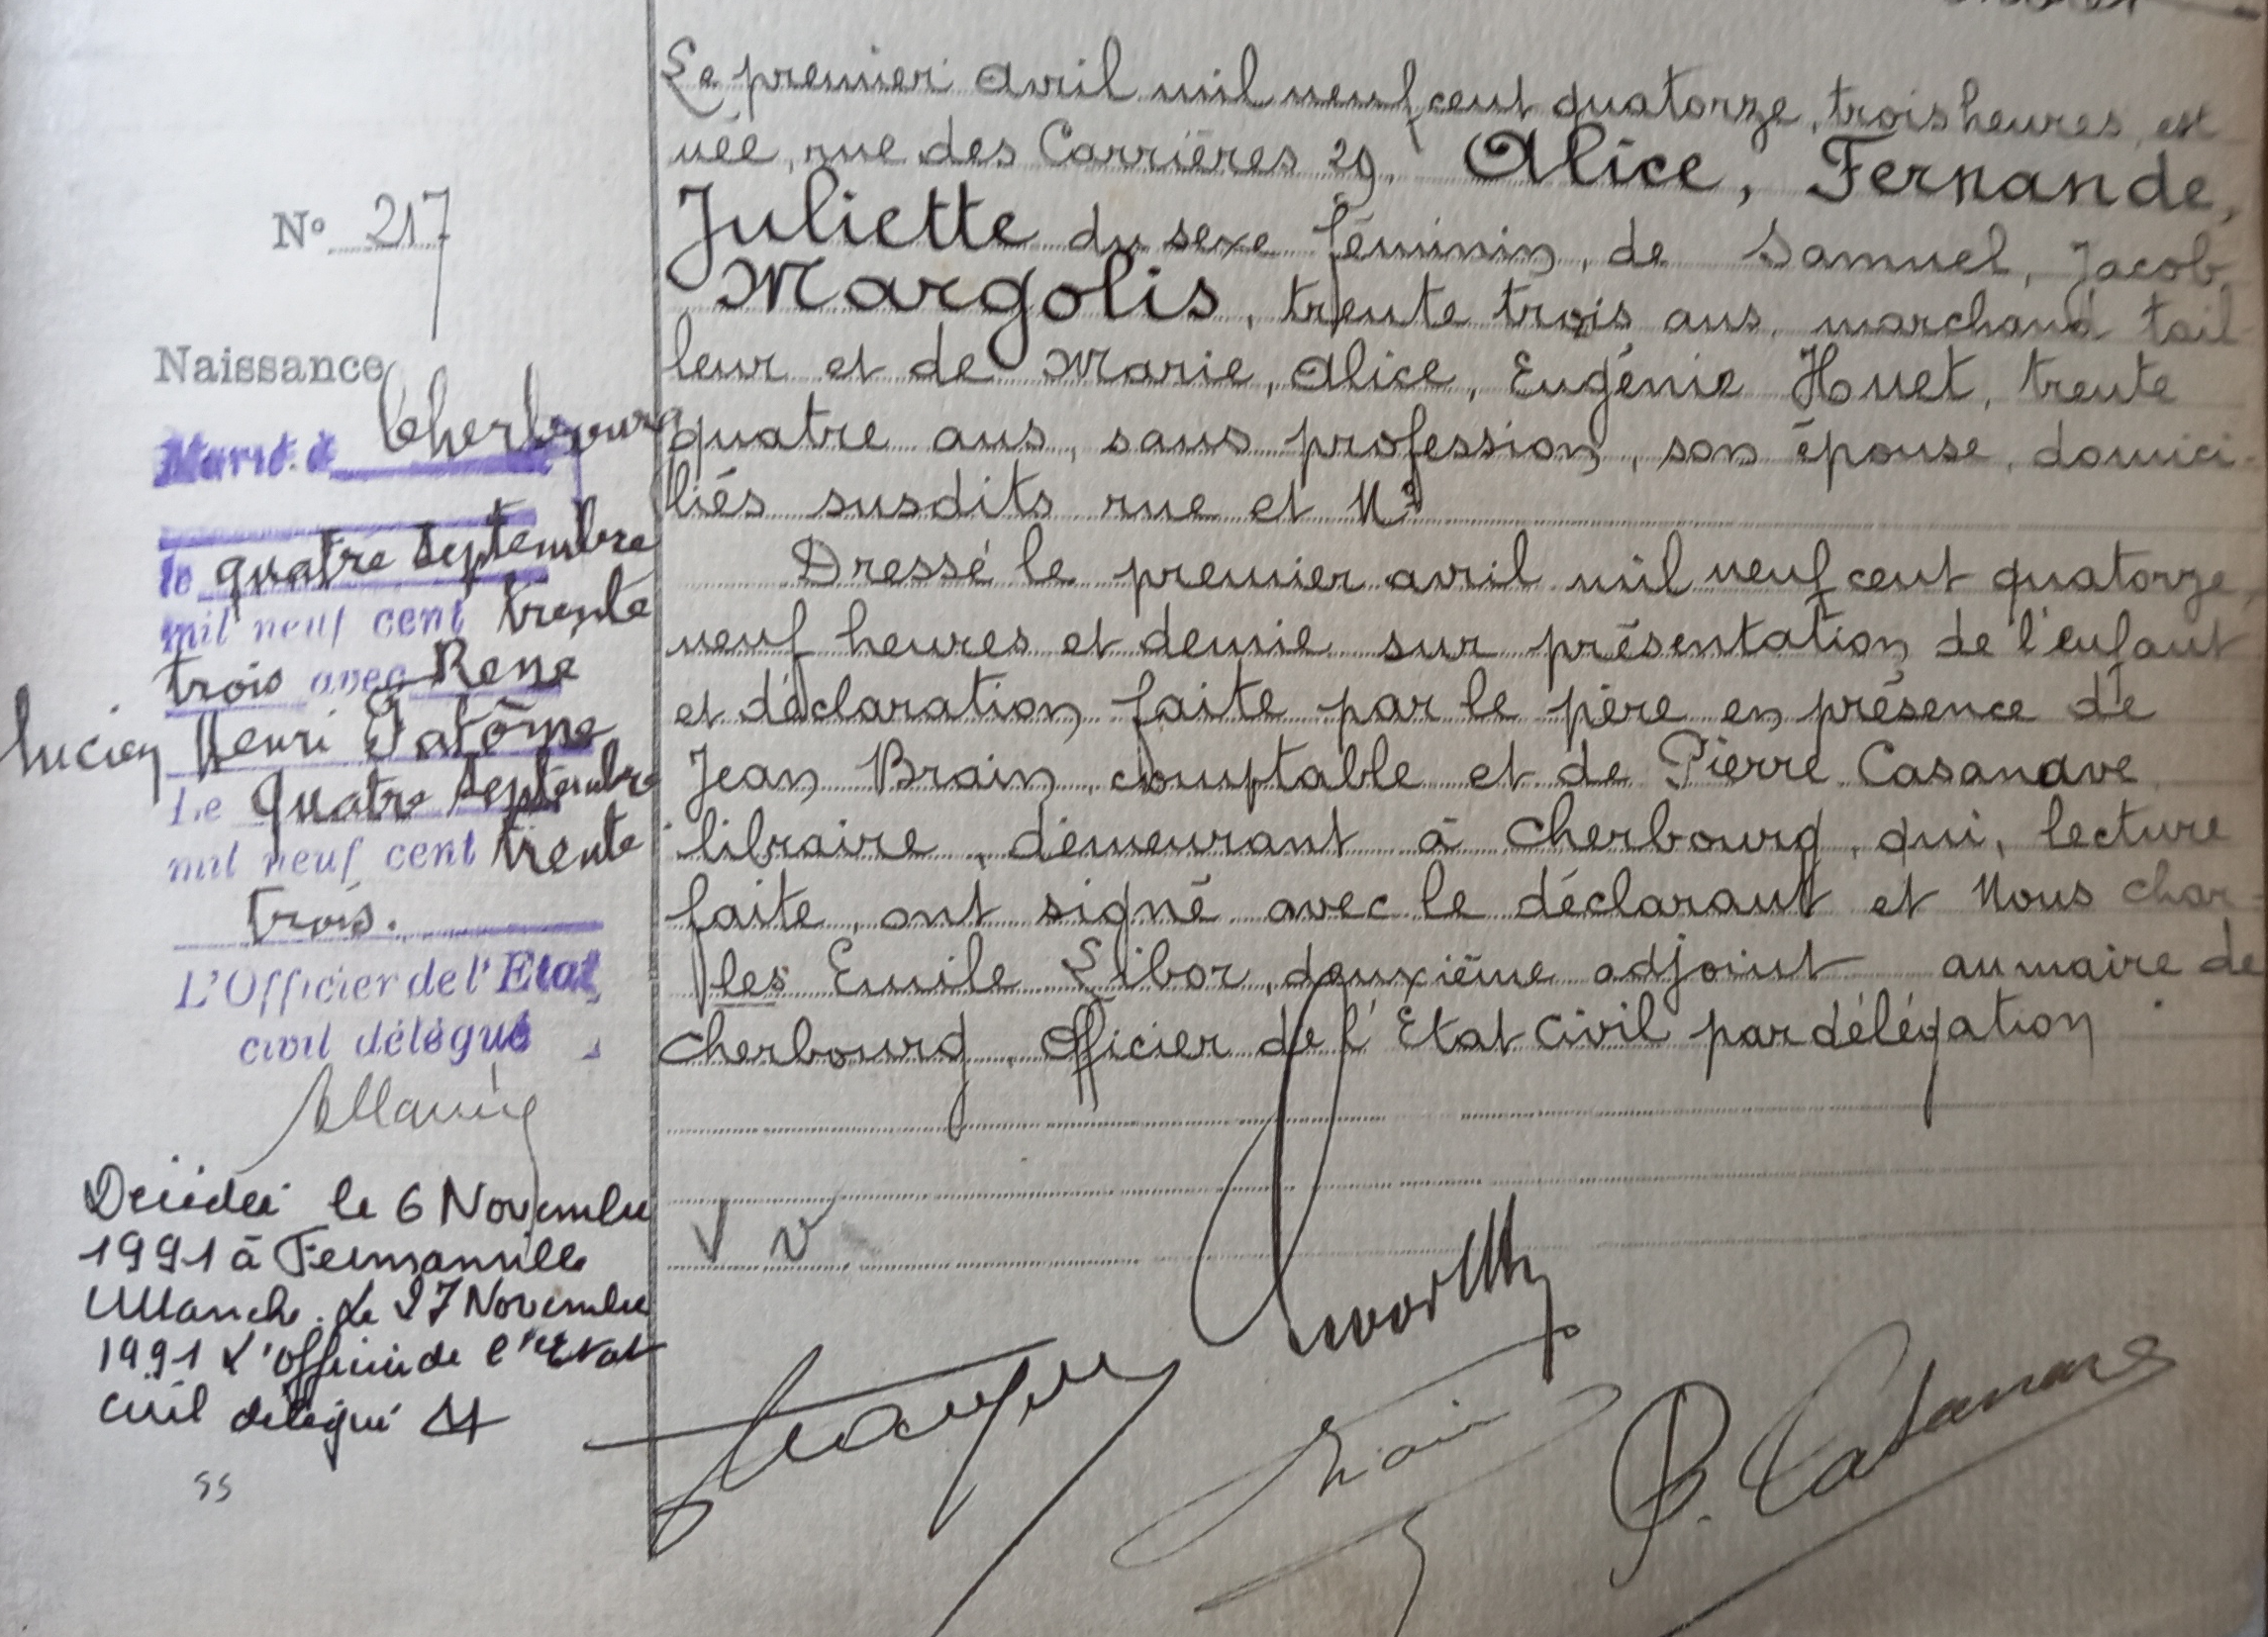 N° 217
Naissance
Marié à Cherbourg
le quatre Septembre
mil neuf cent trente
trois avec René
Lucien Henri Patôme
Le quatre Septembre
mil neuf cent trente
trois.
L'Officier de l'Etat
civil délégué
Décédée le 6 Novembre
1991 à Fermanville
Manche. Le 27 Novembre
1991 L'officier de l'Etat
civil délégué
SS
Le premier avril mil neuf cent quatorze, trois heures, est
née, rue des Carrières 29, Alice, Fernande,
Juliette du sexe féminin, de Samuel, Jacob
Margolis, trente trois ans, marchand tail
leur et de Marie, Alice, Eugénie Houet, trente
quatre ans, sans profession, son épouse, domici-
liés susdits rue et N°
Dressé le premier avril mil neuf cent quatorze,
neuf heures et demie sur présentation de l'enfant
et déclaration faite par le père en présence de
Jean Brain, comptable et de Pierre Casanave
libraire, demeurant à Cherbourg, qui, lecture
faite, ont signé avec le déclarant et Nous Char-
les Emile Libor, deuxième adjoint au maire de
Cherbourg, Officier de l'Etat Civil par délégation
V v
Brain
P. Casanave